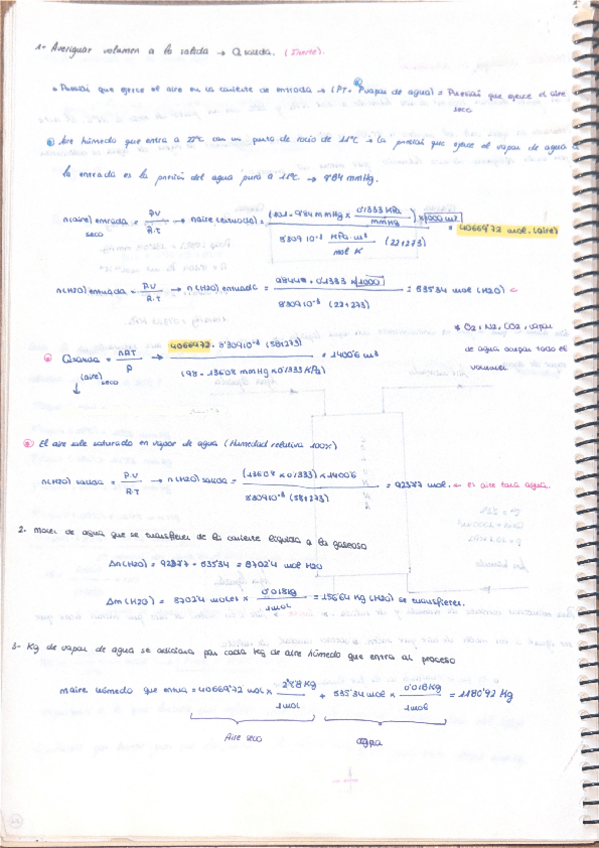 1- Averiguar volumen a la salida → Qsalida. (Inerte).
• Presión que ejerce el aire en la corriente de entrada → (PT - Pvapor de agua) = Presión que ejerce el aire
seco
Aire húmedo que entra a 22ºC con un punto de rocío de 11ºC → la presión que ejerce el vapor de agua a
la entrada es la presión del agua pura a 11ºC → 9'84 mmHg.
n(aire) entrada = P·V / R·T → naire(entrada) = (101 - 9'84 mmHg × 0'1333 KPa / mmHg) × 1000 m³ / 8'309·10⁻³ KPa·m³ / mol K (22+273) = 40669'72 mol. (aire)
seco
n(H2O) entrada = P·V / R·T → n(H2O) entrada = 9'844 · 0'1333 × 1000 / 8'309·10⁻³ (22+273) = 535'34 mol (H2O)
* O2, N2, CO2, vapor
de agua ocupan todo el
volumen
Qsalida = nRT / P → 40669'72 · 8'309·10⁻³ (58+273) / (98 - 136'08 mmHg × 0'1333 KPa) = 1400'6 m³
(aire) seco
El aire sale saturado en vapor de agua (Humedad relativa 100%)
n(H2O) salida = P·V / R·T → n(H2O) salida = (136'08 × 0'1333) × 1400'6 / 8'309·10⁻³ (58+273) = 9237'7 mol. ← el aire gana agua.
2- moles de agua que se transfieren de la corriente líquida a la gaseosa
Δn(H2O) = 9237'7 - 535'34 = 8702'4 mol H2O
Δm(H2O) = 8702'4 moles × 0'018Kg / 1mol = 156'64 Kg (H2O) se transfieren.
3- Kg de vapor de agua se adiciona por cada Kg de aire húmedo que entra al proceso
maire húmedo que entra = 40669'72 mol × Kg / 1mol + 535'34 mol × 0'018 Kg / 1mol = 1180'92 Kg
Aire seco agua